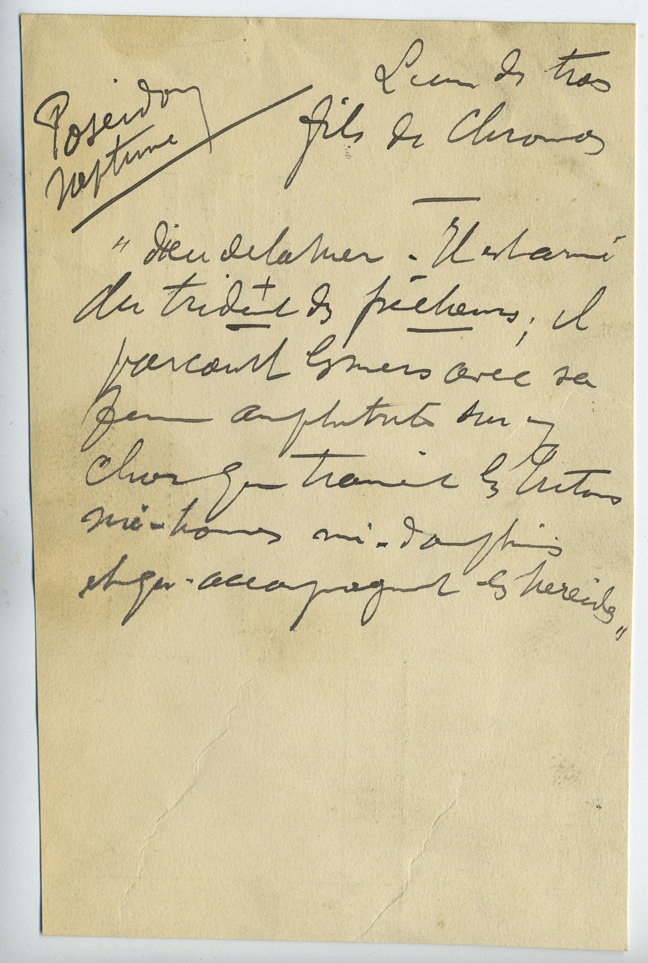 Poseidon
Neptune
L'un des trois
fils de Chronos
" dieu de la mer - Il est armé
du trident des pêcheurs, il
parcourt les mers avec sa
femme amphitrite sur un
char que trainent les Tritons
mi-homes mi-dauphins
et qu'accompagnent les nereides "